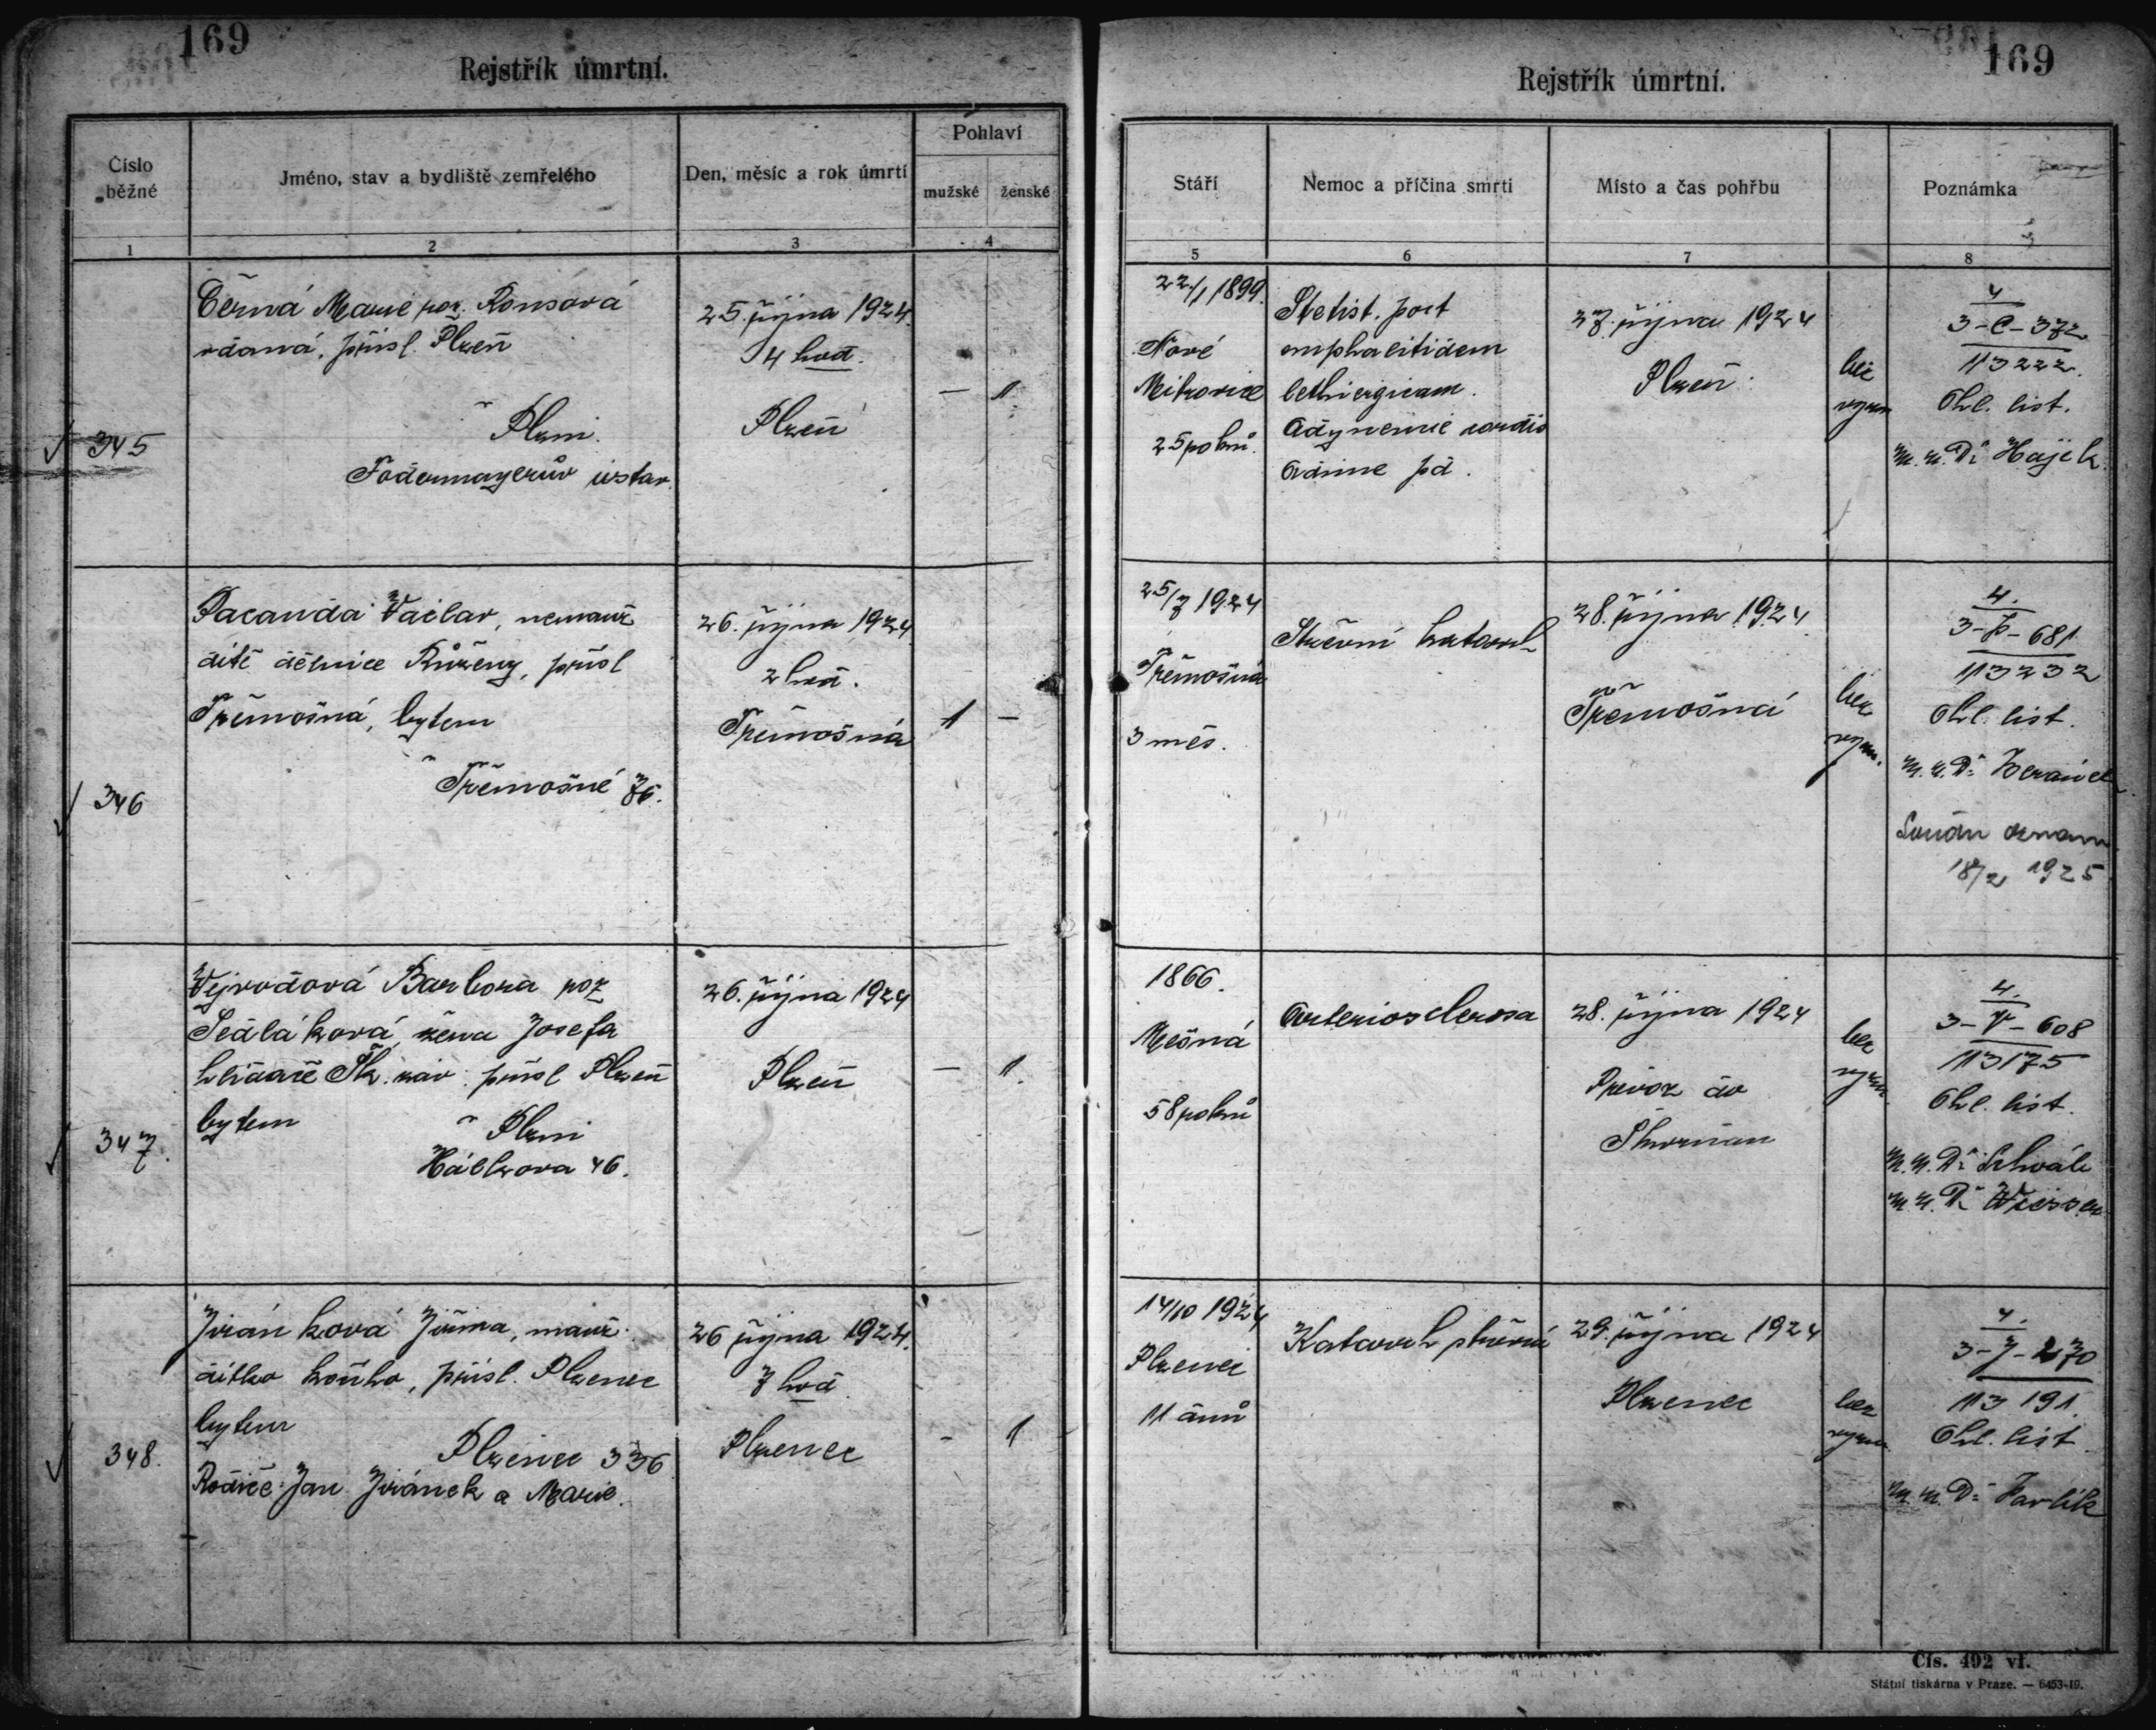 169
Rejstřík úmrtní.
Číslo běžné
Jméno, stav a bydliště zemřelého
Den, měsíc a rok úmrtí
Pohlaví
mužské
ženské
1
2
3
4
345
Černá Marie roz. Ronsová
vdaná, přísl. Plzeň
v Plzni.
Fodermayerův ústav.
25. října 1924.
4 hod.
Plzeň
—
1
346
Pacanda Václav, nemanž
dítě dělnice Růženy, přísl
Třemošná, bytem
v Třemošné 76.
26. října 1924
2 hod.
Třemošná
1
—
347.
Vejvodová Barbora roz
Sedláková, žena Josefa
hlídače Šk. záv. přísl Plzeň
bytem
v Plzni
Hálkova 46.
26. října 1924
Plzeň
—
1.
348.
Jiránková Jiřina, manž.
dítko, přísl. Plzenec
bytem
Plzenec 336
Rodiče: Jan Jiránek a Marie.
26 října 1924.
7 hod.
Plzenec
-
1
169
Rejstřík úmrtní.
Stáří
Nemoc a příčina smrti
Místo a čas pohřbu
Poznámka
5
6
7
8
22/1 1899.
Nové
Mitrovice
25 roků.
post
cordis
27. října 1924
Plzeň.
bez
vyzn
4
3-C-372
113222.
Ohl. list.
m. u. Dr Hájek.
25/7 1924
Třemošná
3 měs.
Střevní katarrh
28. října 1924.
Třemošná
bez
vyzn.
4.
3-P-681
113232
Ohl. list.
m. u. Dr. Beránek
Soudu oznam.
18/2 1925
1866.
Měšná
58 roků
Arteriosclerosa
28. října 1924
Převoz do
Skořnan
bez
vyzn
4.
3-V-608
113175
Ohl. list.
m. u. Dr.
m. u. Dr
14/10 1924
Plzenec
11 dnů
Katarrh střevní
29. října 1924
Plzenec
bez
vyzn.
4.
3-J-270
113191.
Ohl. list.
m. u. Dr. Pavlík
Čís. 492 vf.
Státní tiskárna v Praze. — 6453-19.